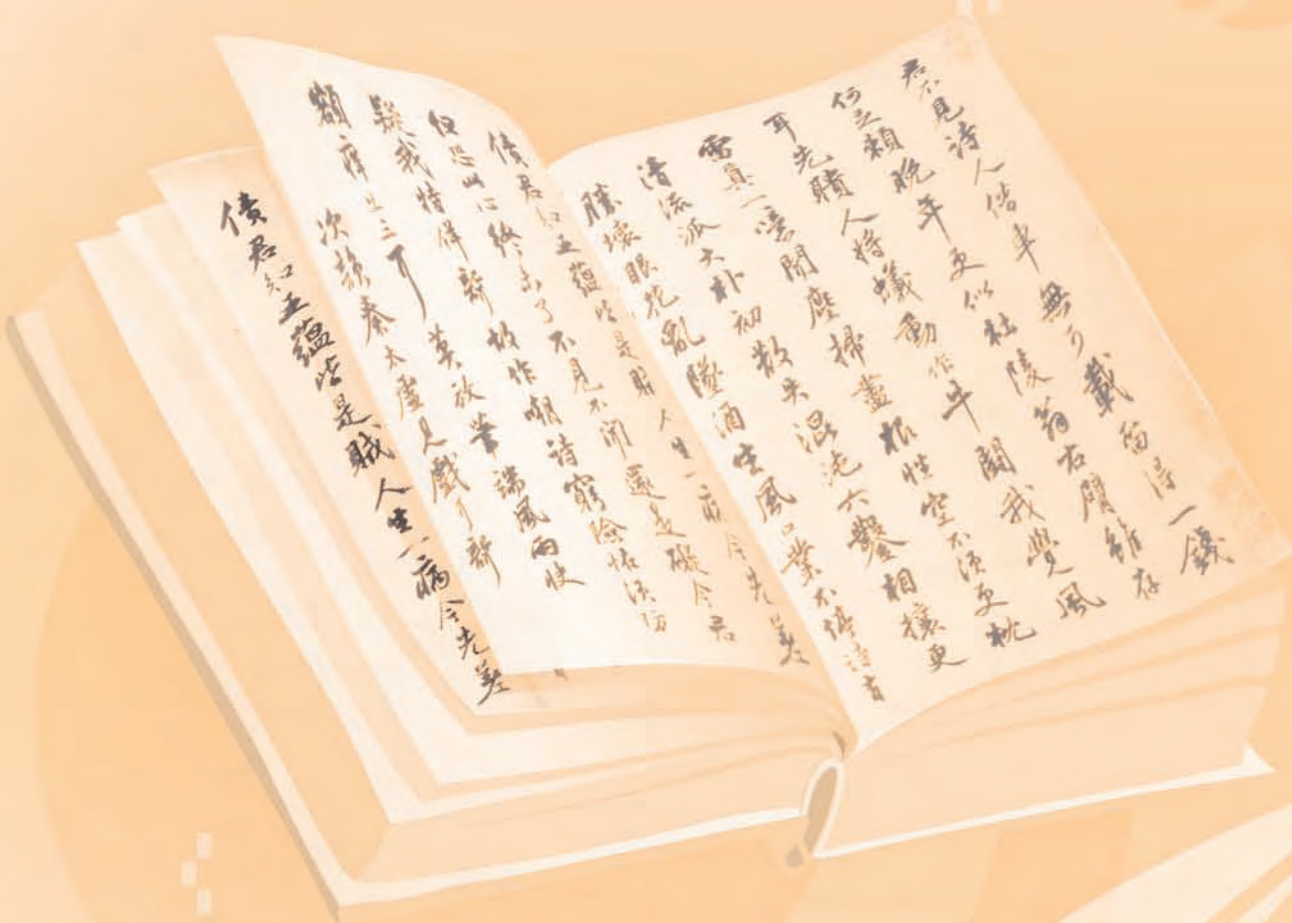 君不見詩人借車無可載留得一錢
何足賴晚年更似杜陵翁右臂雖存
耳先聵人將蟻動作牛鬭我覺風
雷真一噫聞塵掃盡根性空不須更枕
清流派大朴初散失混沌六鑿相攘更
勝壞眼花亂墜酒生風口業不停詩有
債君知五蘊皆是賊人生一病今先差
但恐此心終未了不見不聞還是礙今君
疑我特佯聾故作嘲詩窮險怪須防
額痒出三耳莫放筆端風雨快
次韻秦太虛見戲耳聾
債君知五蘊皆是賊人生一病今先差